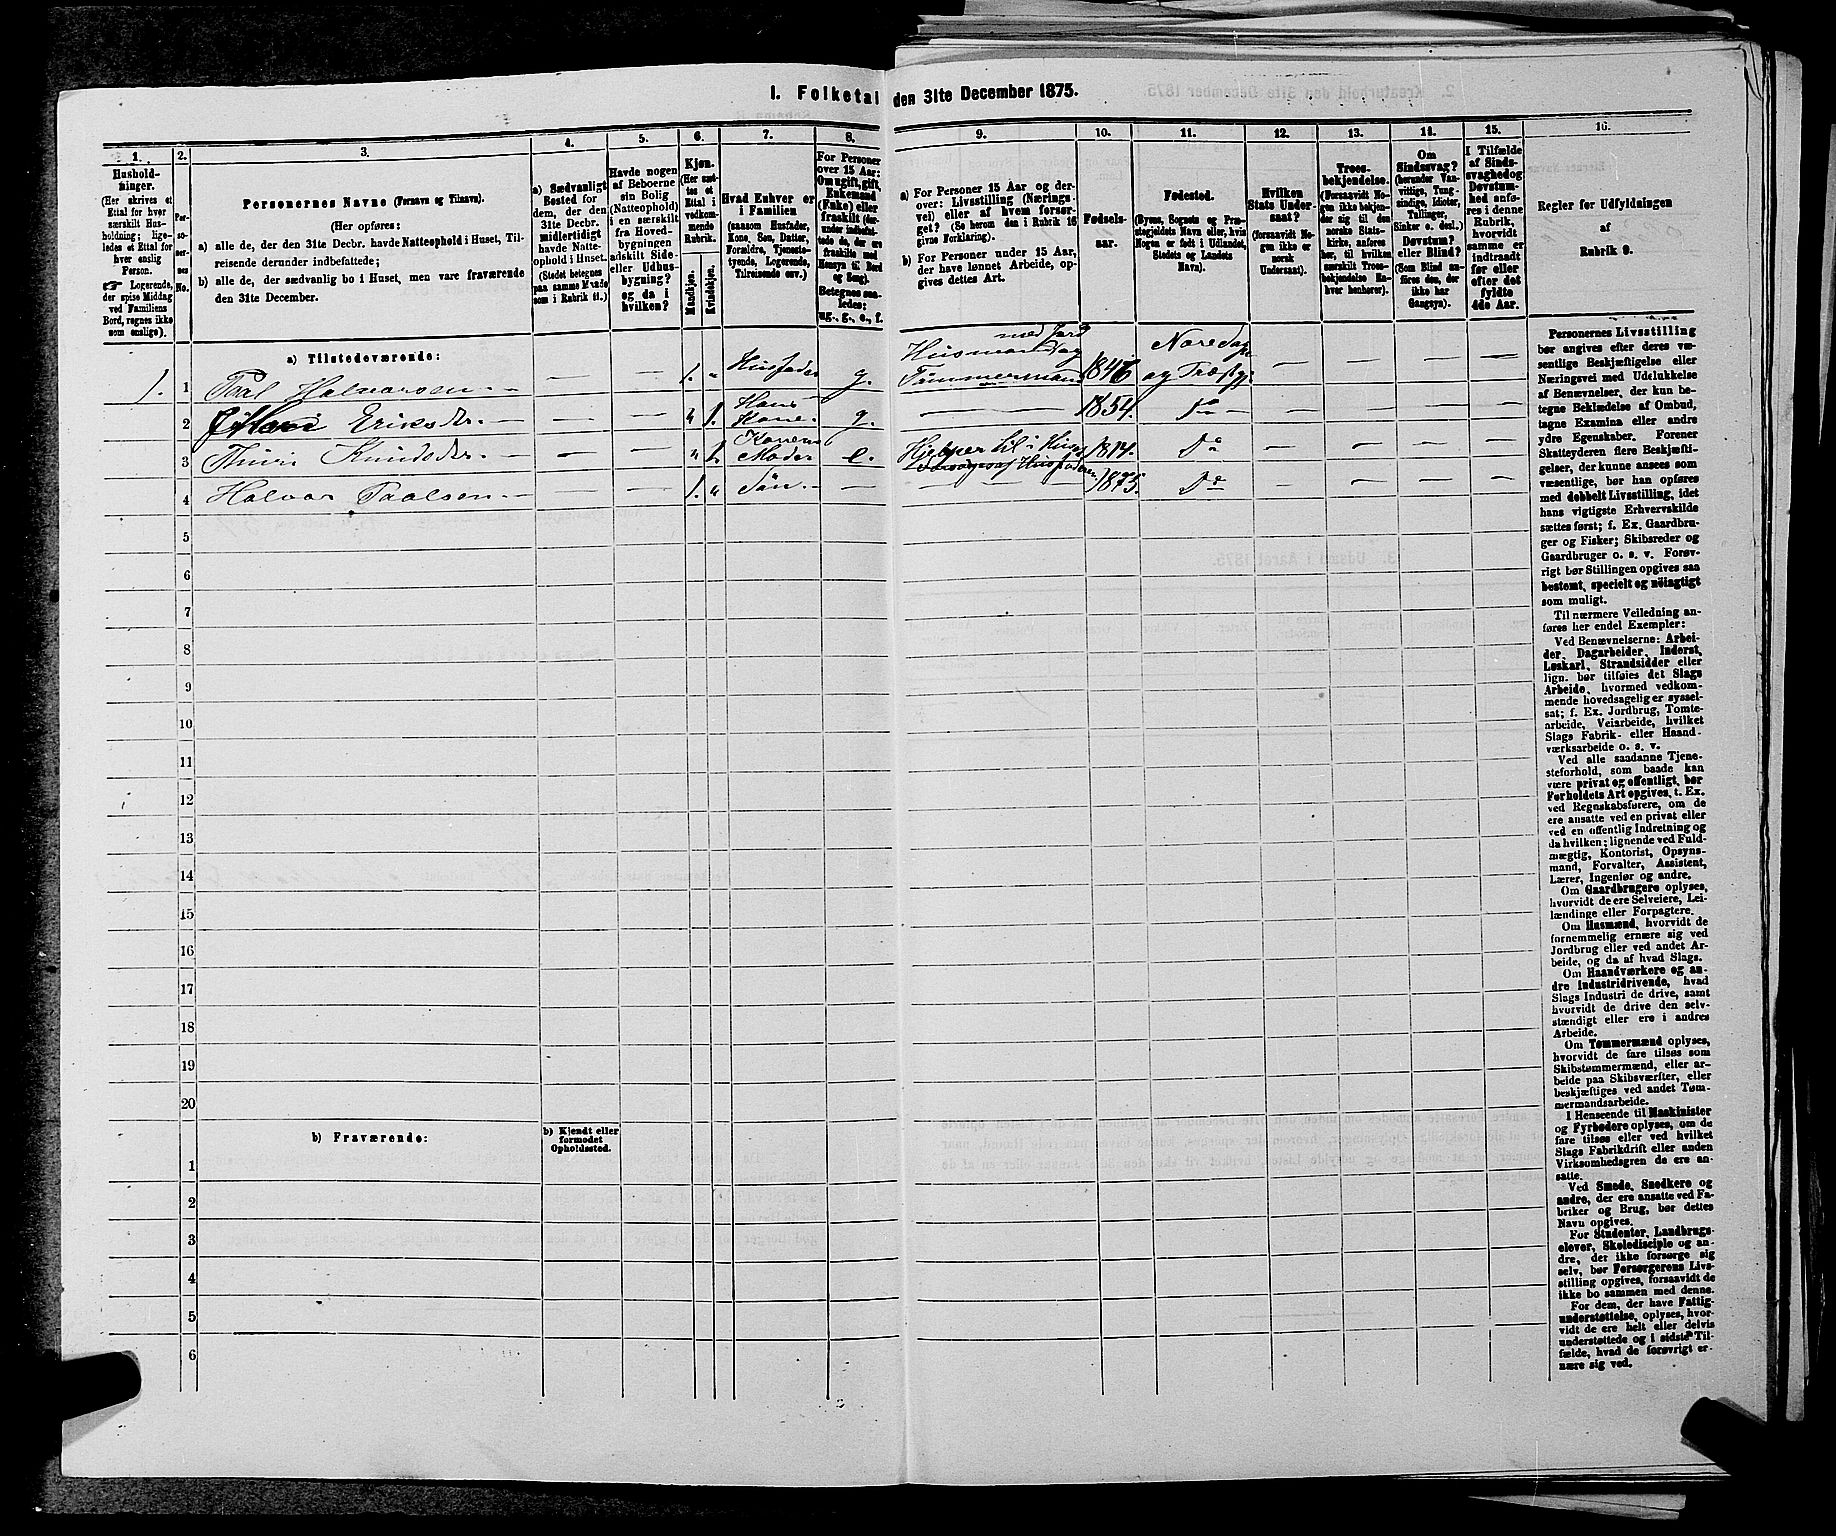 1. Folketal den 31te December 1875.
1. 2. 3. 4. 5. 6. 7. 8. 9. 10. 11. 12. 13. 14. 15. 16.
Hushold-
ninger.
(Her skrives et
Ettal for hver
særskilt Hus-
holdning; lige-
ledes et Ettal for
hver enslig
Person.
☞ Logerende,
der spise Middag
ved Familiens
Bord, regnes ikke
som enslige).
Per-
so-
ner-
nes
No.
Personernes Navne (Fornavn og Tilnavn).
(Her opføres:
a) alle de, der den 31te Decbr. havde Natteophold i Huset, Til-
reisende derunder indbefattede;
b) alle de, der sædvanlig bo i Huset, men vare fraværende
den 31te December.
a) Sædvanligt
Bosted for
dem, der den
31te Decbr.
midlertidigt
havde Natte-
ophold i Huset.
(Stedet betegnes
paa samme Maade
som i Rubrik 11.)
Havde nogen
af Beboerne
sin Bolig
(Natteophold)
i en særskilt
fra Hoved-
bygningen
adskilt Side-
eller Udhus-
bygning?
og da i
hvilken?
Kjøn.
(Her sæt-
tes et
Ettal i
vedkom-
mende
Rubrik.
Mandkjøn.
Kvindekjøn.
Hvad Enhver er
i Familien
(saasom Husfader,
Kone, Søn, Datter,
Forældre, Tjeneste-
tyende, Logerende,
Tilreisende osv.)
For Personer
over 15 Aar:
Om ugift, gift,
Enkemand
(Enke) eller
fraskilt (der-
under indbefat-
tede de, der ere
fraskilte med
Hensyn til Bord
og Seng).
Betegnes saa-
ledes:
ug., g., e., f.
a) For Personer 15 Aar og der-
over: Livsstilling (Nærings-
vei) eller af hvem forsør-
get? (Se herom den i Rubrik 16
givne Forklaring).
b) For Personer under 15 Aar,
der have lønnet Arbeide, op-
gives dettes Art.
Fødsels-
aar.
Fødested.
(Byens, Sognets og Præ-
stegjeldets Navn eller, hvis
Nogen er født i Udlandet,
Stedets og Landets
Navn).
Hvilken
Stats Under-
saat?
(forsaavidt No-
gen ikke er
norsk
Undersaat).
Troes-
bekjendelse.
(Forsaavidt No-
gen ikke bekjen-
der sig til den
norske Stats-
kirke, anføres
her, til hvilken
særskilt Troes-
bekjendelse En-
hver henhører).
Om
Sindssvag?
(herunder Van-
vittige, Tung-
sindige, Idioter,
Tullinger,
Sinker o. desl.).
Døvstum?
eller Blind?
(Som Blind an-
føres den, der
ikke har
Gangsyn).
I Tilfælde
af Sinds-
svaghed og
Døvstum-
hed anfø-
res i denne
Rubrik,
hvorvidt
samme er
indtraadt
før eller
efter det
fyldte
4de Aar.
Regler for Udfyldningen
af
Rubrik 9.
a) Tilstedeværende:
1. 1 Paal Halvorsen — — 1. „ Husfader g. Husmand med Jord og Tømmermand 1846 og Træstg. — — — —
2 Eriksdr. — — „ 1. Hans Kone. g. — 1854. Do — — — —
3 Thuri Knudsdr. — — „ 1. Konens Moder e. Hjelper til i Huset 1814. Do — — — —
4 Halvor Paalsen — — 1. „ Søn — — — 1875. Do — — — —
5
6
7
8
9
10
11
12
13
14
15
16
17
18
19
20
b) Fraværende:
b) Kjendt eller
formodet
Opholdssted.
1
2
3
4
5
6
Personernes Livsstilling
bør angives efter deres væ-
sentlige Beskjæftigelse eller
Næringsvei med Udelukkelse
af Benævnelser, der kun be-
tegne Beklædelse af Ombud,
tagne Examina eller andre
ydre Egenskaber. Forener
Skatteyderen flere Beskjæfti-
gelser, der kunne ansees som
væsentlige, bør han opføres
med dobbelt Livsstilling, idet
hans vigtigste Erhvervskilde
sættes først; f. Ex. Gaardbru-
ger og Fisker; Skibsreder og
Gaardbruger o. s. v. Forøv-
rigt bør Stillingen opgives saa
bestemt, specielt og nøiagtigt
som muligt.
Til nærmere Veiledning an-
føres her endel Exempler:
Ved Benævnelserne: Arbei-
der, Dagarbeider, Inderst,
Løskarl, Strandsidder eller
lign. bør tilføies det Slags
Arbeide, hvormed vedkom-
mende hovedsagelig er syssel-
sat; f. Ex. Jordbrug, Tomte-
arbeide, Veiarbeide, hvilket
Slags Fabrik- eller Haand-
værksarbeide o. s. v.
Ved alle saadanne Tjene-
steforhold, som baade kan
være privat og offentligt, bør
Forholdets Art opgives, t. Ex.
ved Regnskabsførere, om de
ere ansatte ved en privat eller
ved en offentlig Indretning og
da hvilken; lignende ved Fuld-
mægtig, Kontorist, Opsyns-
mand, Forvalter, Assistent,
Lærer, Ingeniør og andre.
Om Gaardbrugere oplyses,
hvorvidt de ere Selveiere, Lei-
lændinge eller Forpagtere.
Om Husmænd, hvorvidt de
fornemmelig ernære sig ved
Jordbrug eller ved andet Ar-
beide, og da af hvad Slags.
Om Haandværkere og an-
dre Industridrivende, hvad
Slags Industri de drive, samt
hvorvidt de drive den selv-
stændigt eller ere i andres
Arbeide.
Om Tømmermænd oplyses,
hvorvidt de fare tilsøs som
Skibstømmermænd, eller ar-
beide paa Skibsværfter, eller
beskjæftiges ved andet Tøm-
mermandsarbeide.
I Henseende til Maskinister
og Fyrbødere oplyses, om de
fare tilsøs eller ved hvilket
Slags Fabrikdrift eller anden
Virksomhedsgren de ere an-
satte.
Ved Smede, Snedkere og
andre, der ere ansatte ved Fa-
briker og Brug, bør dettes
Navn opgives.
For Studenter, Landbrugs-
elever, Skoledisciple og an-
dre, der ikke forsørge sig
selv, bør Forsørgerens Livs-
stilling opgives, forsaavidt de
ikke bo sammen med denne.
For dem, der have Fattig-
understøttelse, oplyses, hvor-
vidt de ere helt eller delvis
understøttede og i sidste Til-
fælde, hvad de forøvrigt er-
nære sig ved.